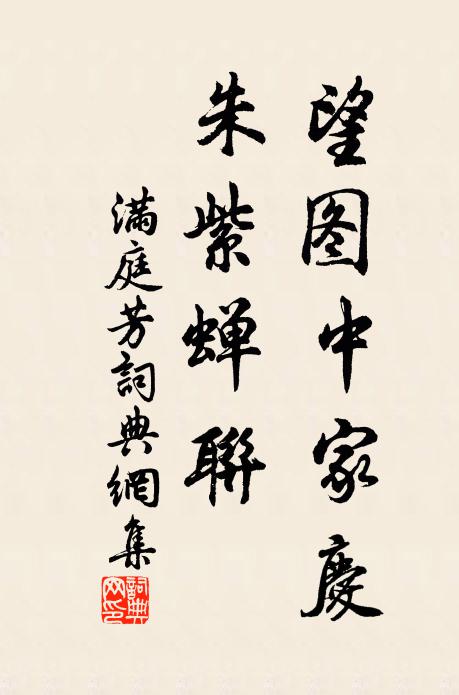 望图中家慶
朱紫蝉聯
滿庭芳詞典網集
詞典网印